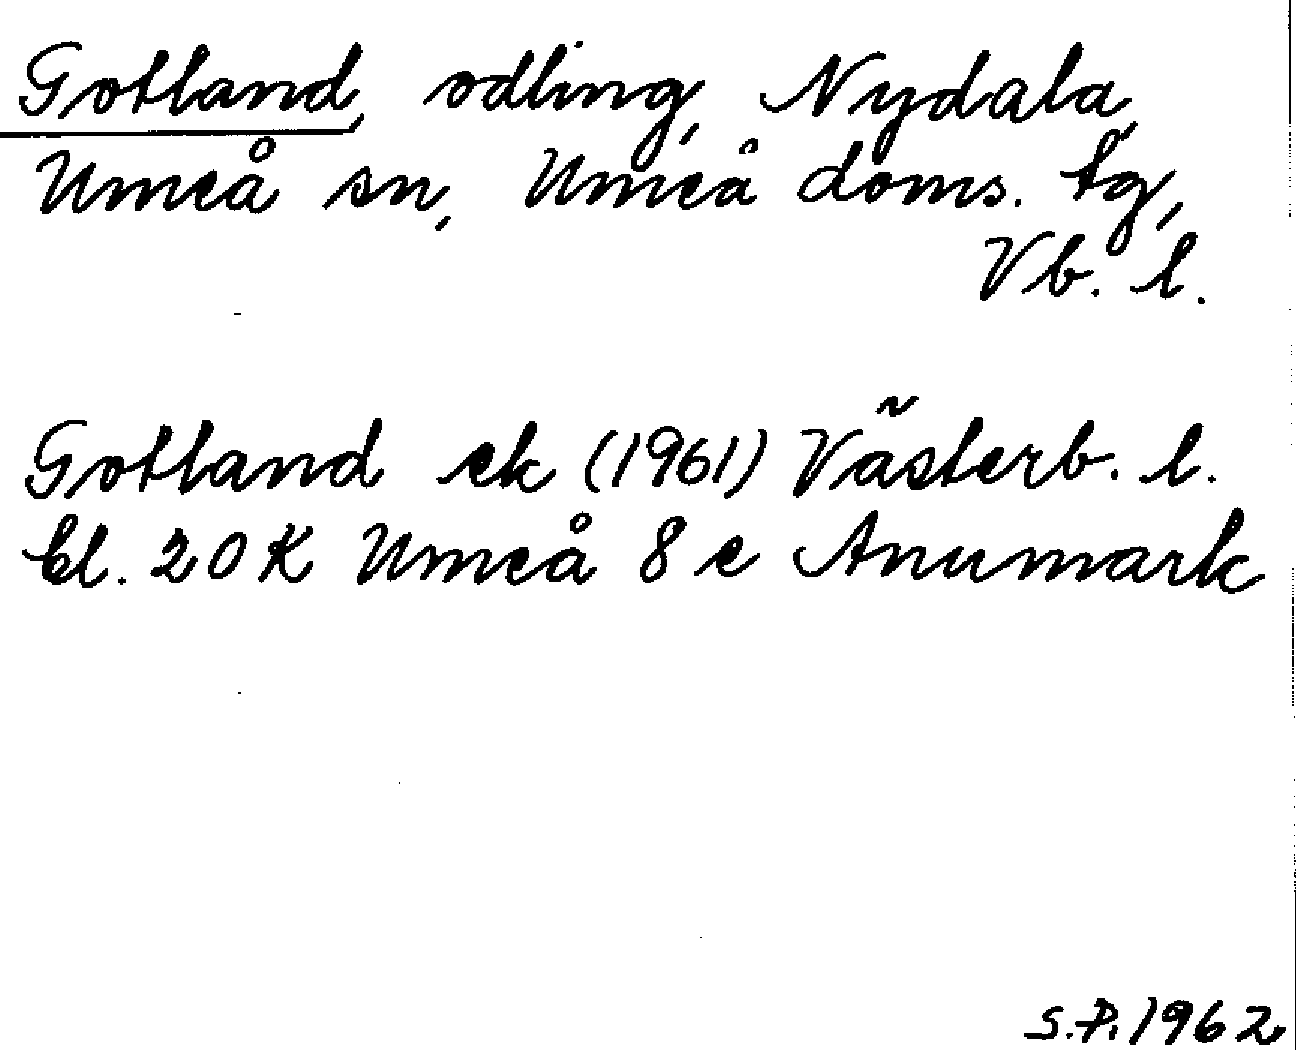 Gotland, odling, Nydala,
Umeå sn, Umeå doms. tg,
Vb. l.
Gotland ek (1961) Västerb. l.
bl. 20 K Umeå 8 e Anumark
S.P. 1962